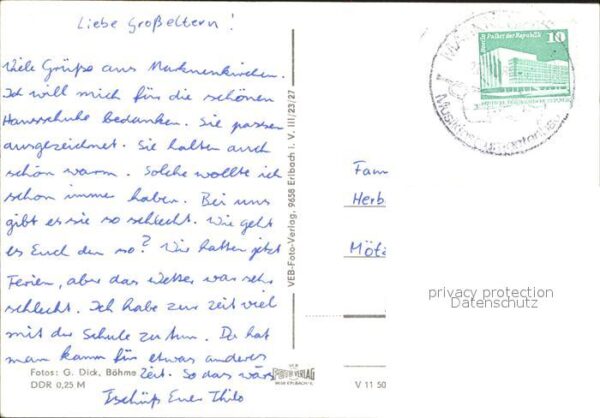 Liebe Großeltern!
Viele Grüße aus Markneukirchen.
Ich will mich für die schönen
Hausschuhe bedanken. Sie passen
ausgezeichnet. Sie halten auch
schön warm. Solche wollte ich
schon imme haben. Bei uns
gibt es sie so schlecht. Wie geht
es Euch den so? Wir hatten jetzt
Ferien, aber das Wetter war sehr
schlecht. Ich habe zur Zeit viel
mit der Schule zu tun. Da hat
man kaum für etwas anderes
Zeit. So das wärs
Tschüß Euer Thilo
Fotos: G. Dick, Böhme
DDR 0,25 M
VEB-Foto-Verlag, 9658 Erlbach i. V. III/23/27
VERLAG
V 11 50
Berlin Palast der Republik
10
Fam
Herb
Mötz
privacy protection
Datenschutz